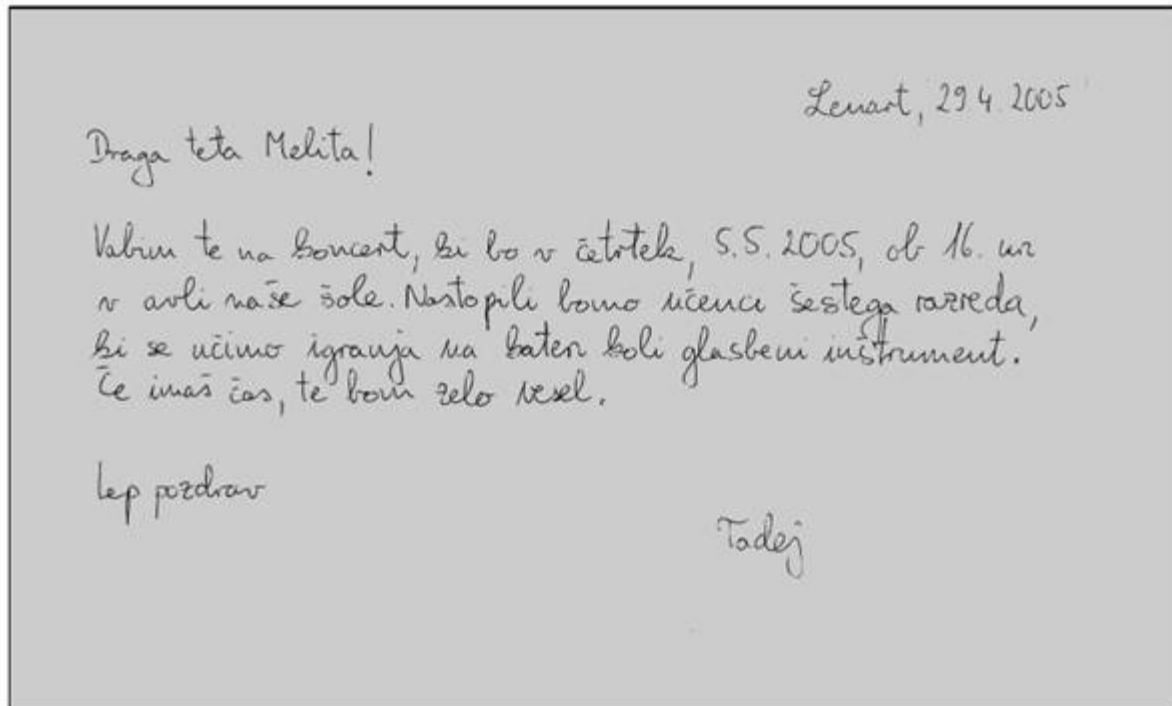 Lenart, 29 4. 2005
Draga teta Melita!
Vabim te na koncert, ki bo v četrtek, 5.5. 2005, ob 16. uri
v avli naše šole. Nastopili bomo učenci šestega razreda,
ki se učimo igranja na kateri koli glasbeni inštrument.
Če imaš čas, te bom zelo vesel.
Lep pozdrav
Tadej